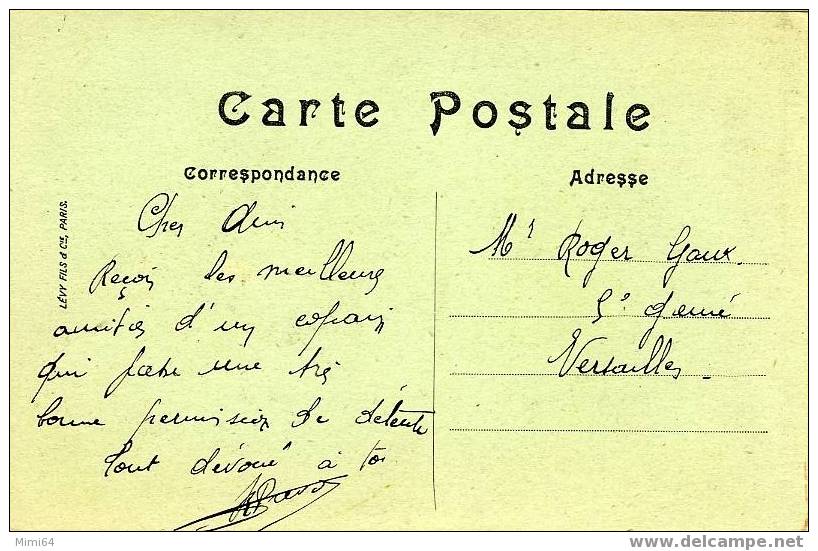 Carte Postale
Correspondance
Adresse
LÉVY FILS & Cie, PARIS.
Cher Ami
Reçois les meilleures
amitiés d'un copain
qui passe une très
bonne permission de détente
Tout dévoué à toi
Mr Roger Gaux
5e Génie
Versailles
Mimi64
www.delcampe.net